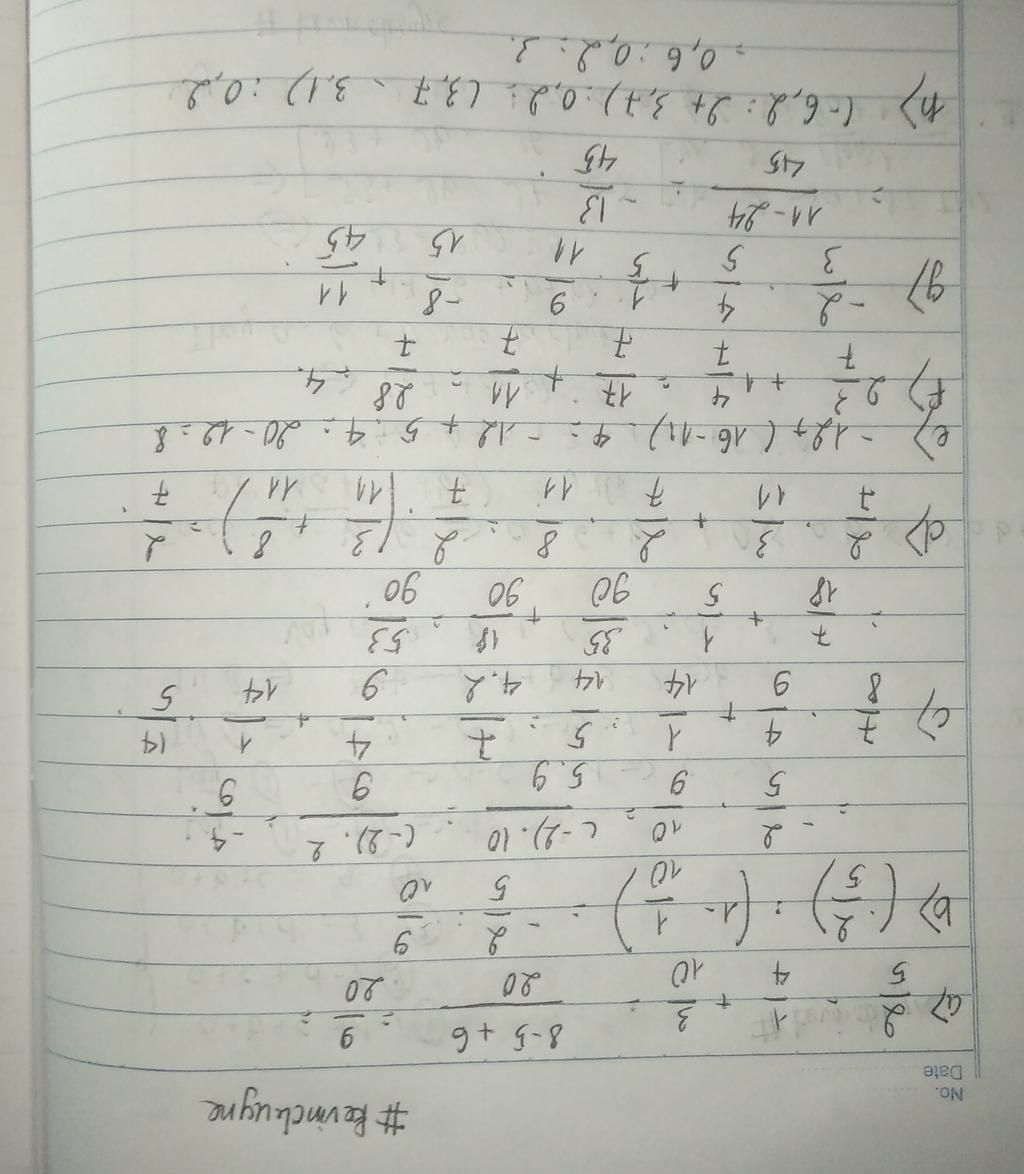 #kevinchugne
No.
Date
a) 2/5 - 1/4 + 3/10 = (8-5+6)/20 = 9/20 =
b) (-2/5) : (1 - 1/10) = -2/5 : 9/10
= -2/5 . 10/9 = (-2).10/5.9 = (-2).2/9 = -4/9.
c) 7/8 . 4/9 + 1/14 : 5/14 = 7/4.2 . 4/9 + 1/14 . 14/5.
= 7/18 + 1/5 = 35/90 + 18/90 = 53/90.
d) 2/7 . 3/11 + 2/7 . 8/11 = 2/7 . (3/11 + 8/11) = 2/7.
e) -12 + (16-11) . 4 = -12 + 5.4 = 20-12 = 8
f) 2 3/7 + 1 4/7 = 17/7 + 11/7 = 28/7 = 4.
g) -2/3 . 4/5 + 1/5 : 9/11 = -8/15 + 11/45.
= (11-24)/45 = -13/45.
h) (-6,2 : 2 + 3,7) : 0,2 = (3,7 - 3,1) : 0,2
= 0,6 : 0,2 = 3.